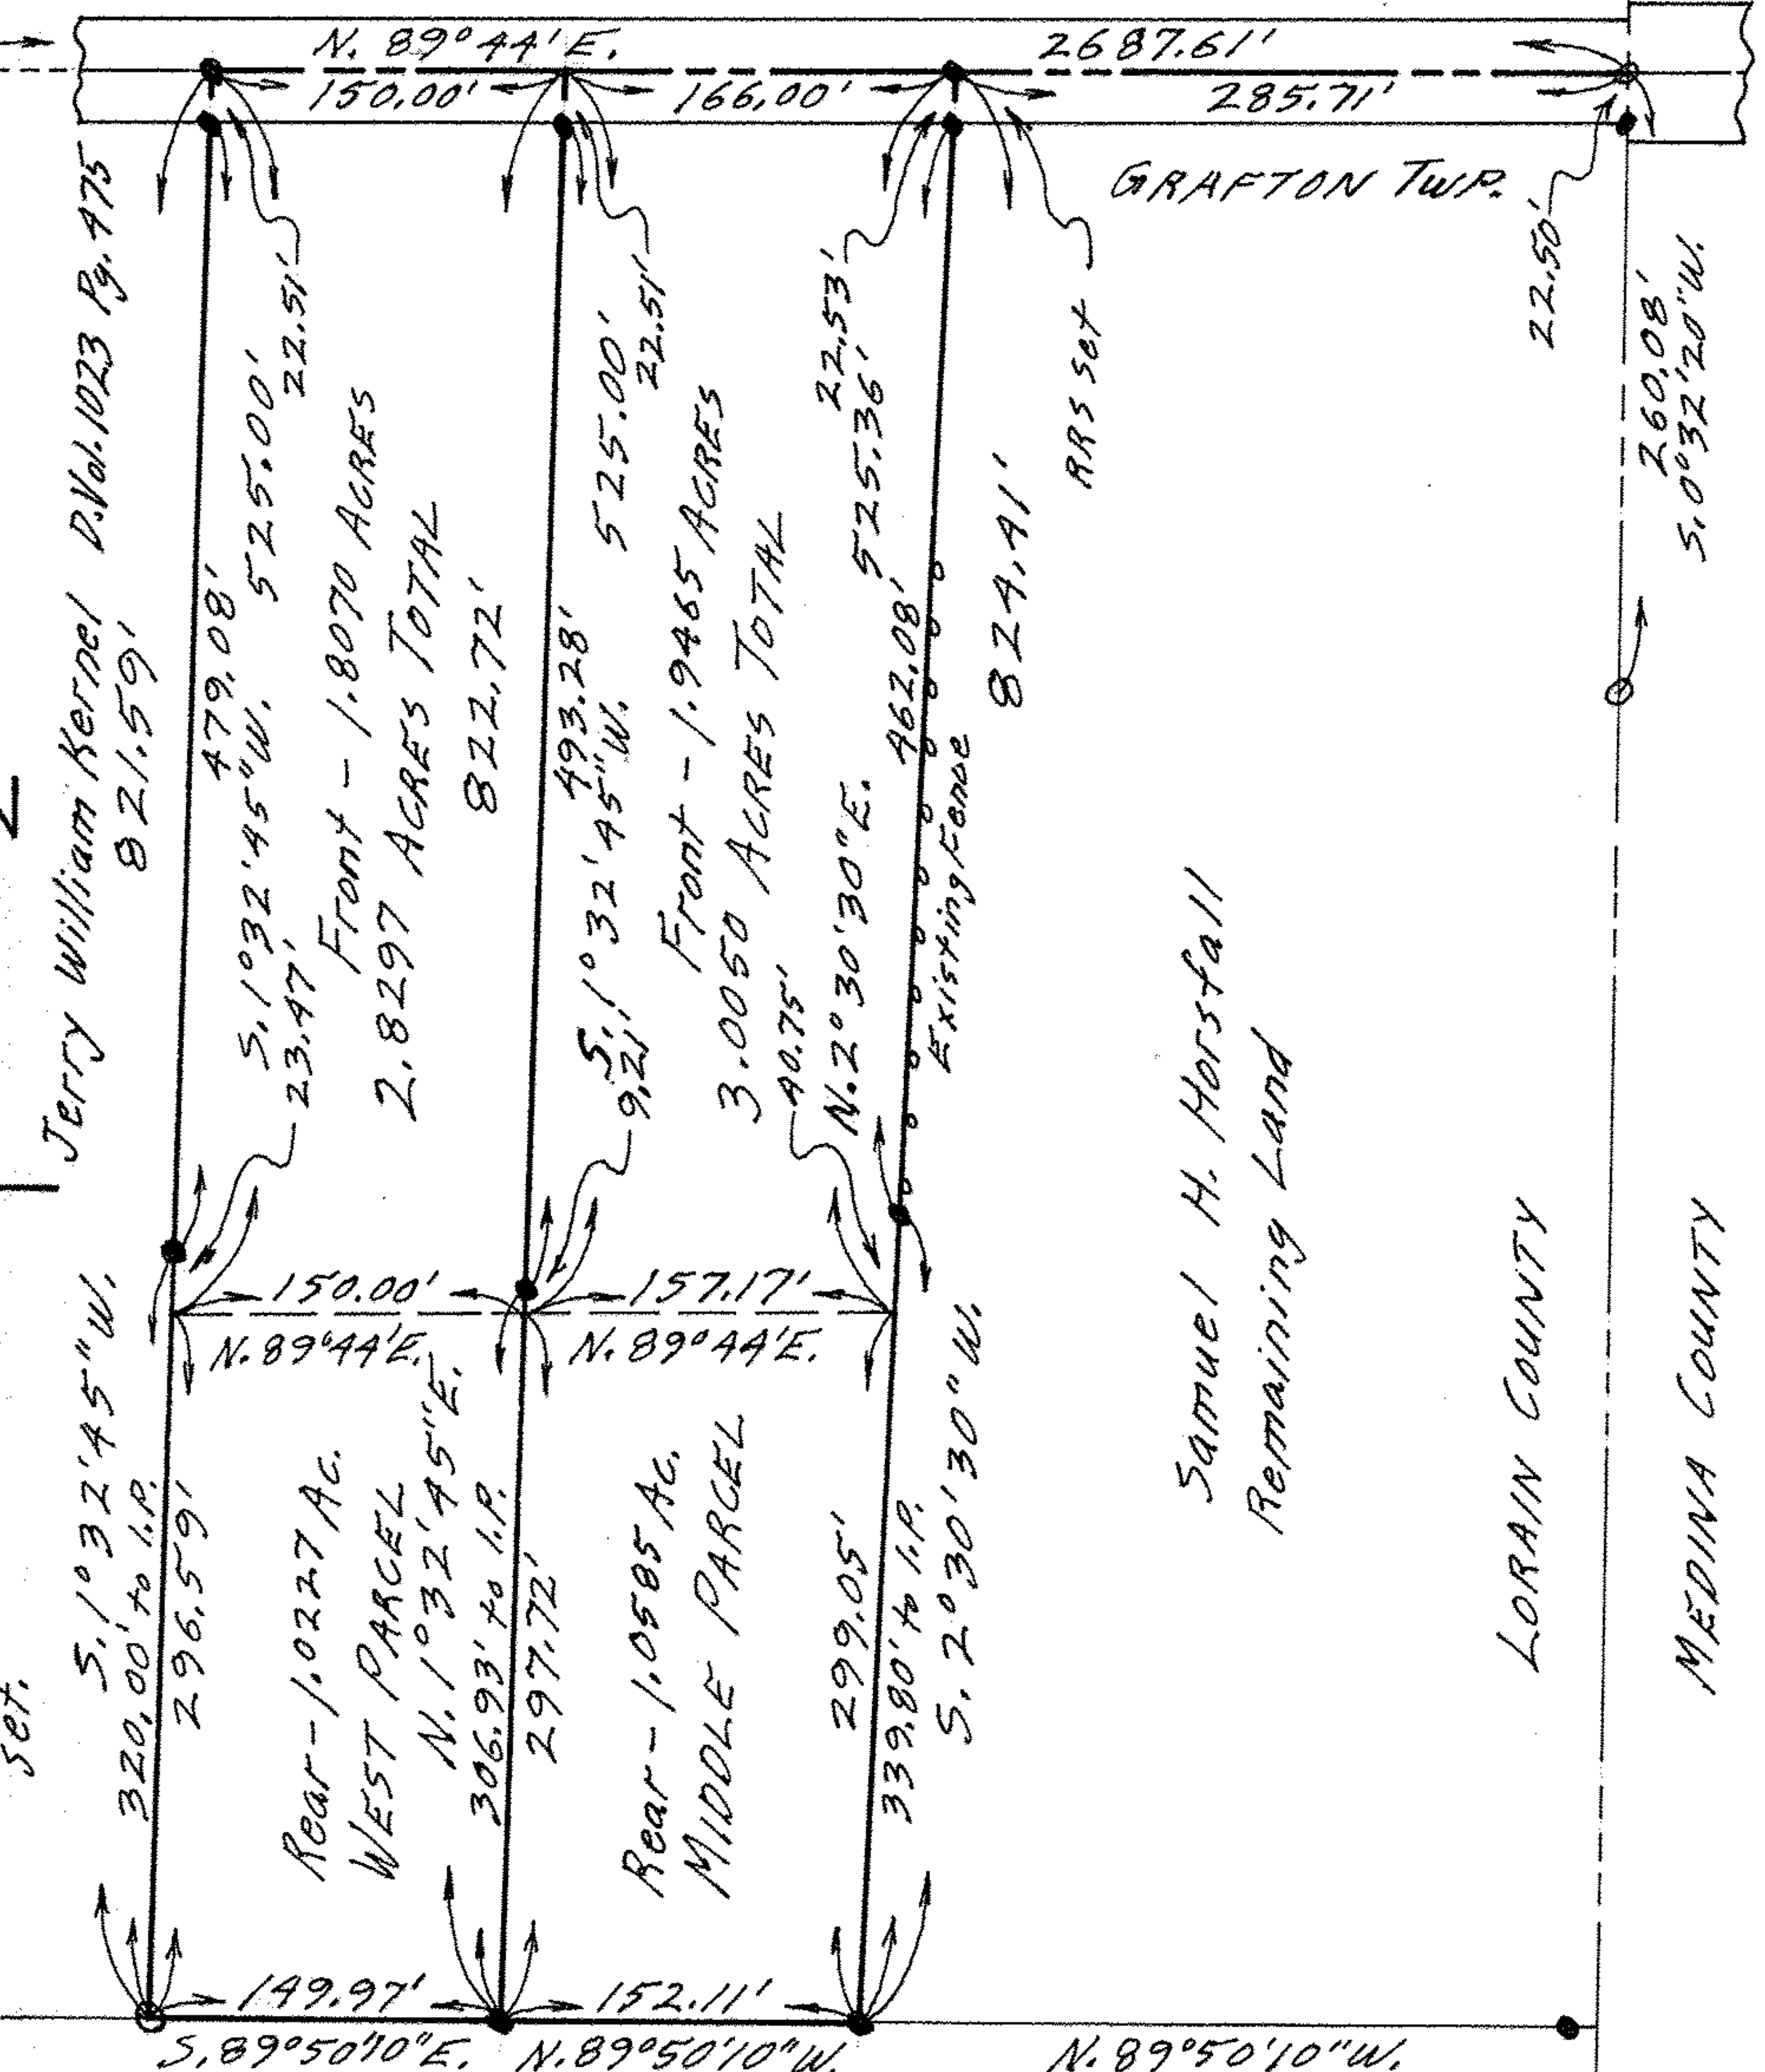 N. 89°44'E.
2687.61'
150.00'
166.00'
285.71'
GRAFTON TWP.
Jerry William Kernel D.Vol.1023 Pg.475
821.59'
479.08'
S.1°32'45"W. 525.00'
22.51'
23.47'
Front - 1.8070 ACRES
2.8297 ACRES TOTAL
822.72'
493.28'
S.1°32'45"W.
525.00'
22.51'
9.21'
Front - 1.9465 ACRES
3.0050 ACRES TOTAL
40.75'
N.2°30'30"E.
22.53'
525.36'
462.08'
Existing Fence
824.41'
RRS set
22.50'
260.08'
S.0°32'20"W.
Samuel H. Horsfall
Remaining Land
LORAIN COUNTY
MEDINA COUNTY
150.00'
N.89°44'E.
157.17'
N.89°44'E.
set.
S.1°32'45"W.
320.00' to I.P.
296.59'
Rear - 1.0227 Ac.
WEST PARCEL
N.1°32'45"E.
306.93' to I.P.
297.72'
Rear - 1.0585 Ac.
MIDDLE PARCEL
299.05'
339.80' to I.P.
S.2°30'30"W.
149.97'
152.11'
S.89°50'10"E.
N.89°50'10"W.
N.89°50'10"W.